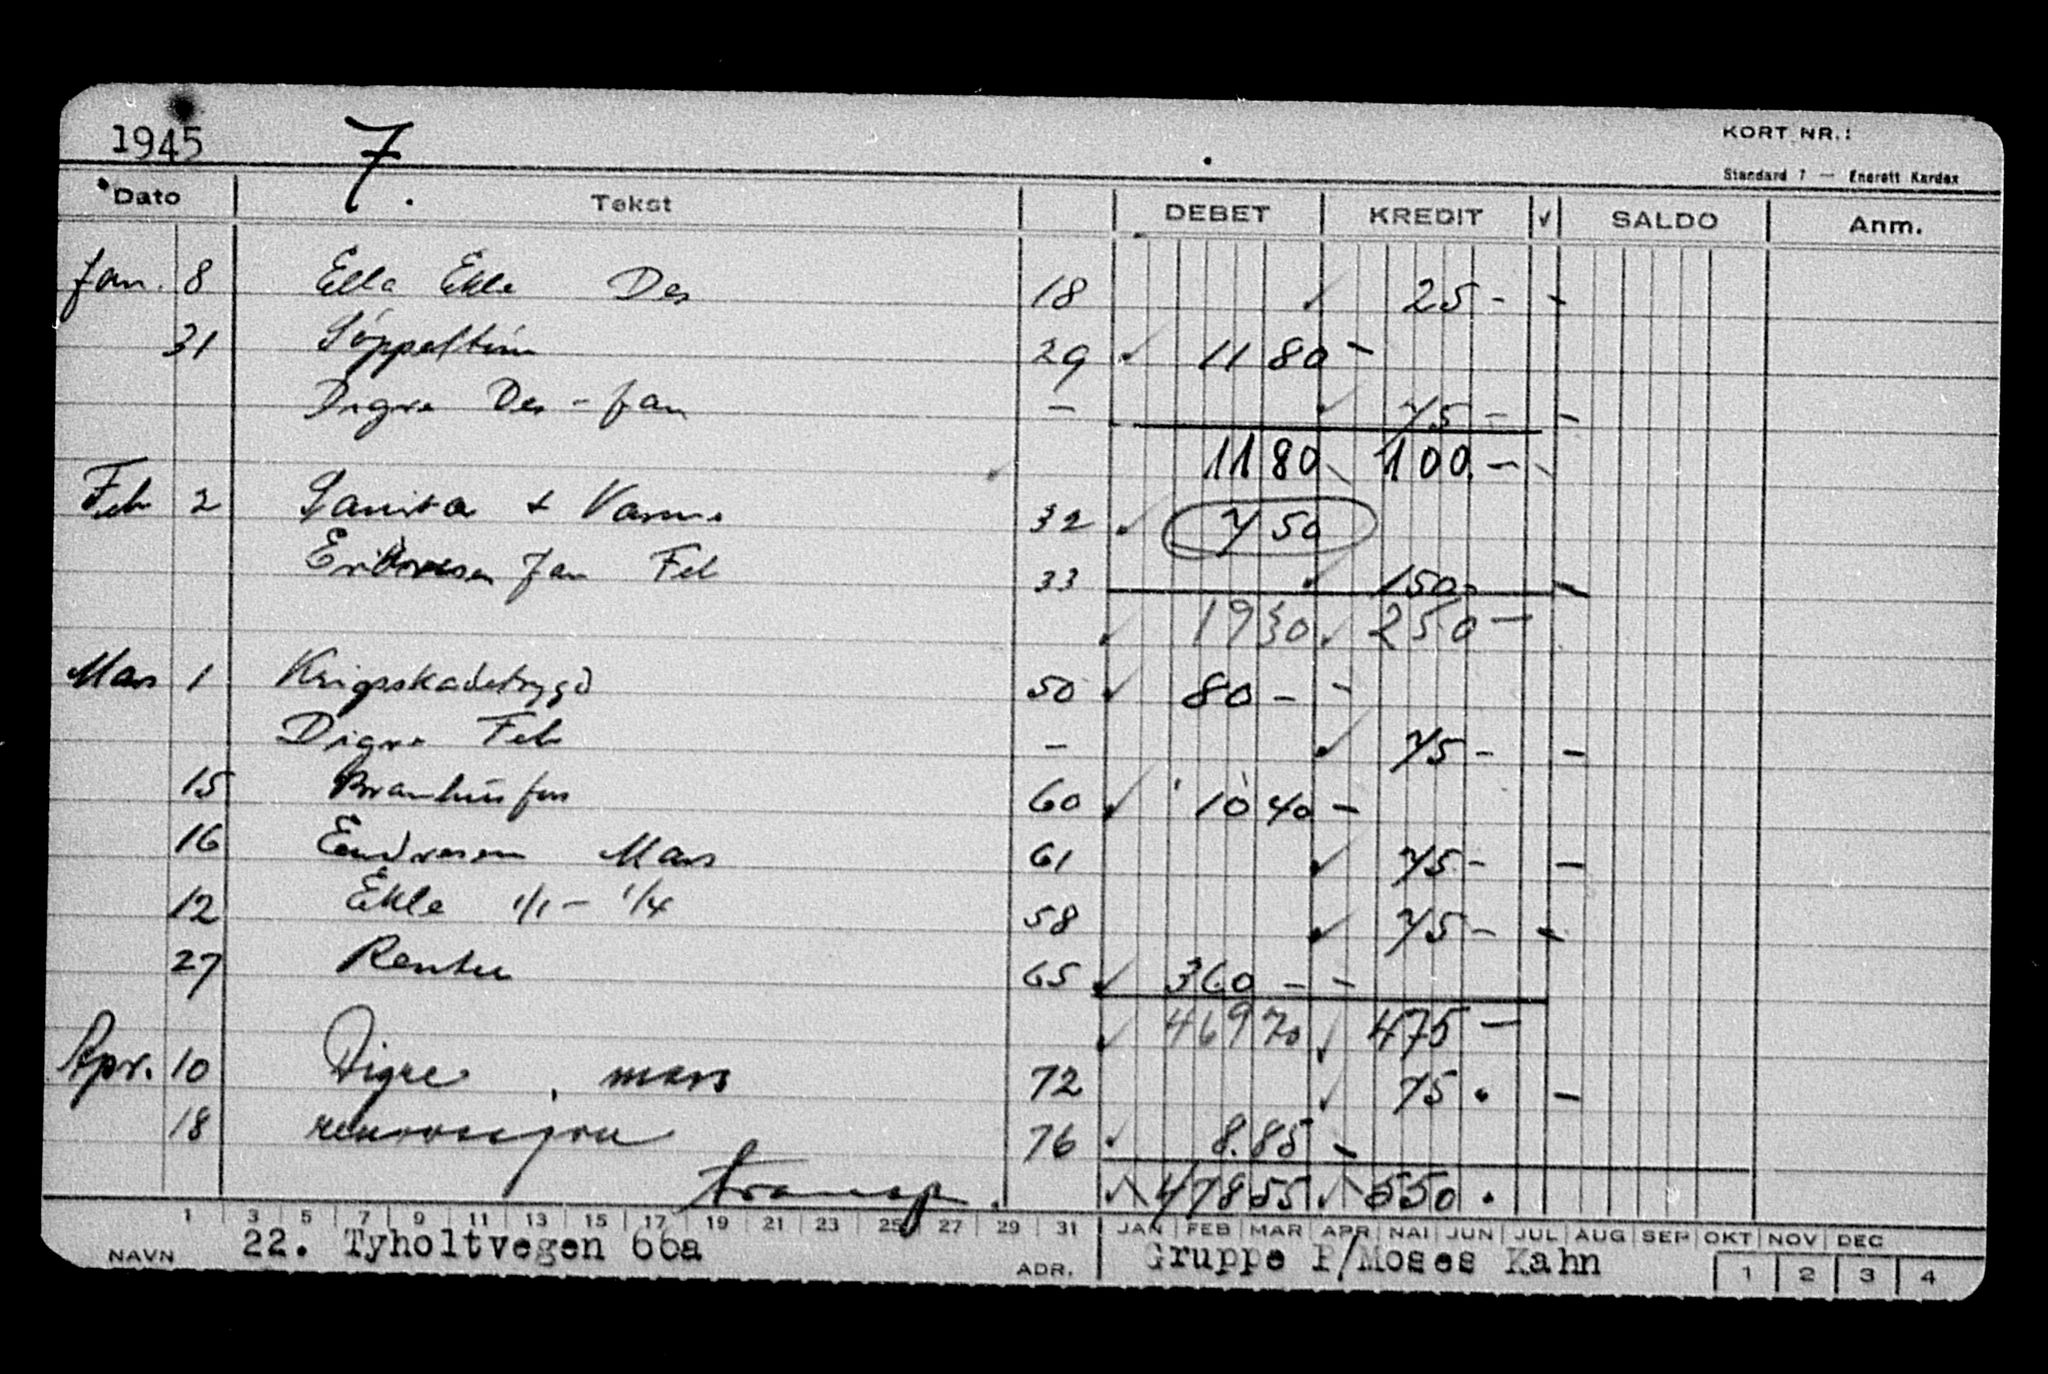 1945 7. KORT NR.:
Standard 7 — Enerett Kardex
Dato Tekst DEBET KREDIT √ SALDO Anm.
Jan. 8 Ella Ekle Des 18 25 - -
31 Söppeltöm 29 11 80 -
Digre Des - Jan - 75 - -
11 80 100. -
Feb 2 Sanitær + Varme 32 7 50
Endresen Jan Feb 33 150 - -
19 30 250 -
Mars 1 Krigsskadetrygd 50 80 - -
Digre Feb - 75 - -
15 60 10 40 -
16 Endresen Mars 61 75 - -
12 Ekle 1/1 - 1/4 58 75 - -
27 Renter 65 360 - -
469 70 475 -
Apr. 10 Digre, mars 72 75 . -
18 76 8.85 -
transp. 478 55 550 .
1 3 5 7 9 11 13 15 17 19 21 23 25 27 29 31 JAN FEB MAR APR MAI JUN JUL AUG SEP OKT NOV DEC
NAVN 22. Tyholtvegen 66a ADR. Gruppe P/Moses Kahn 1 2 3 4